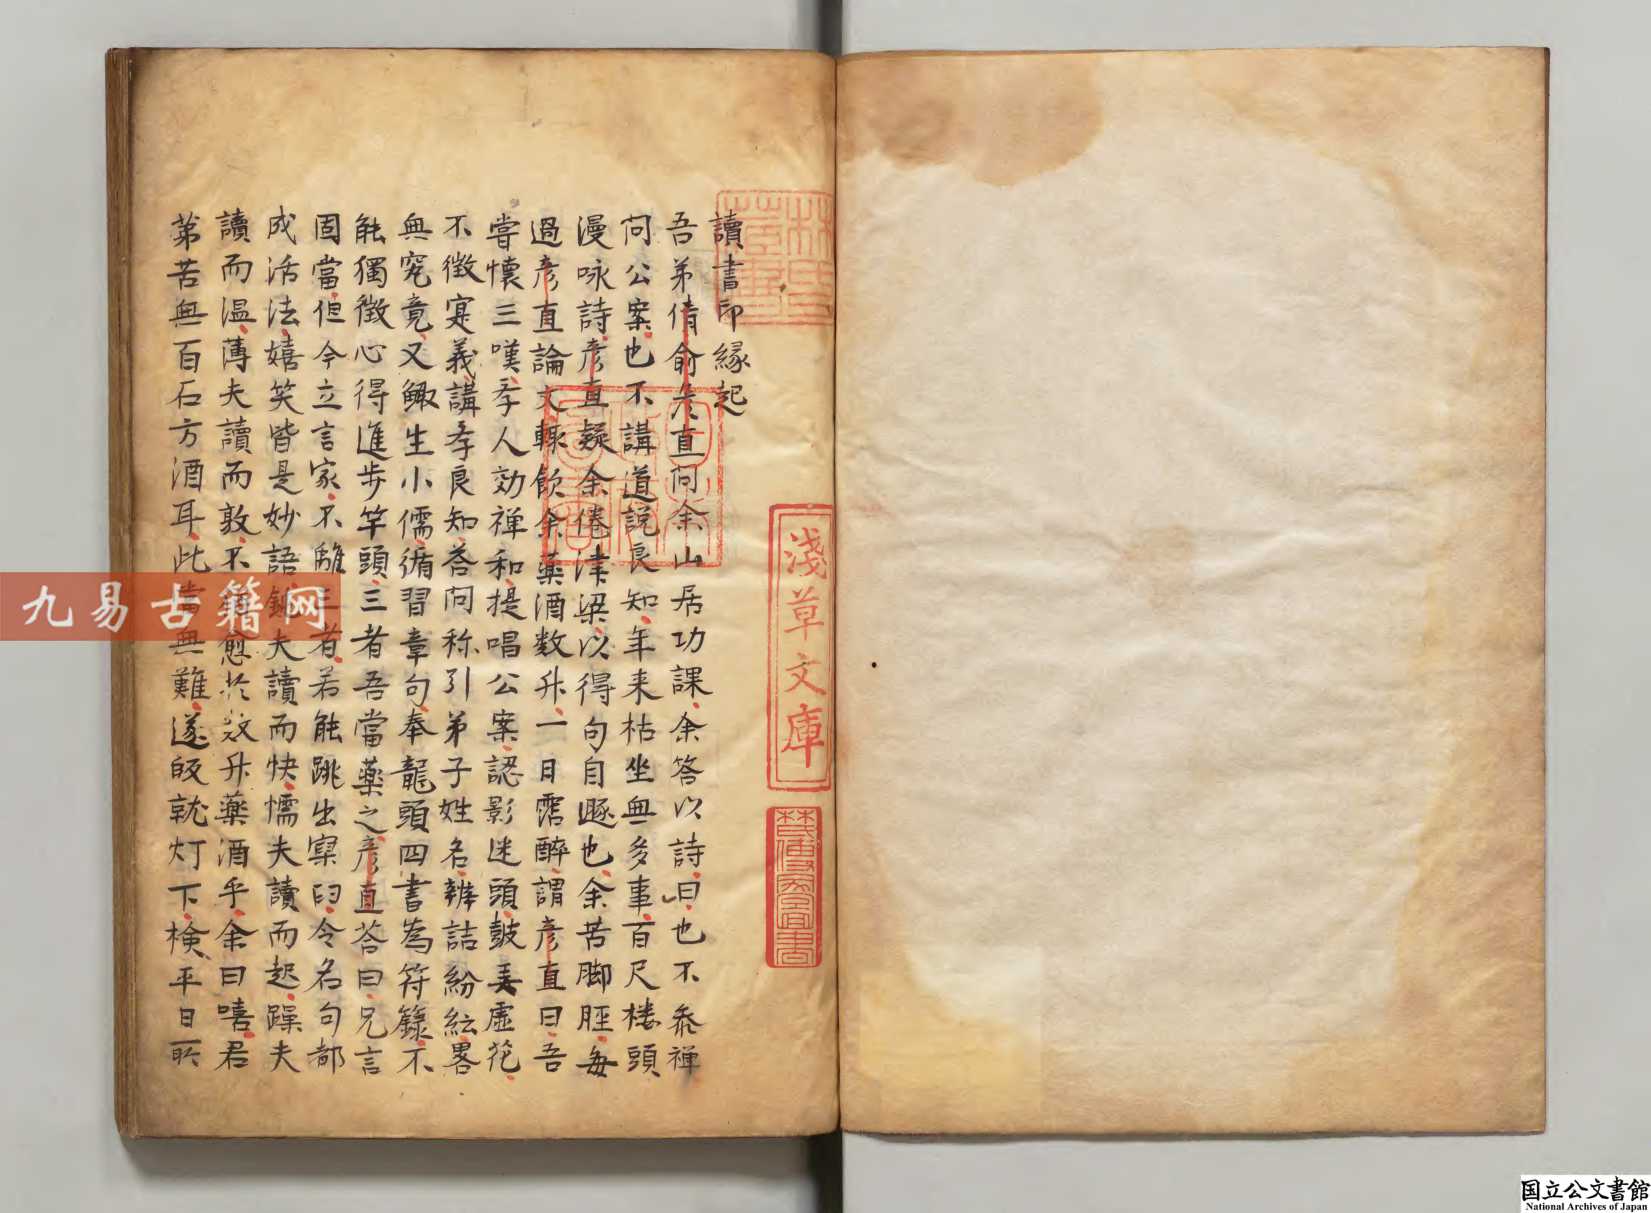 讀書印緣起
吾弟倩俞彥直問余山居功課余答以詩曰也不參禪
問公案也不講道說良知年來枯坐無多事百尺樓頭
漫咏詩彥直疑余倦津梁以得句自遯也余苦脚脛每
過彥直論文輒飲余藥酒数升一日霑醉謂彥直曰吾
嘗懷三嘆孝人効禅和提唱公案認影迷頭鼓弄虛花
不徵寔義講孝良知答问称引弟子姓名辨詰紛紜畧
無究竟又鲰生小儒循習章句奉龍頭四書為符籙不
能獨徵心得進步竿頭三者吾當藥之彥直荅曰兄言
固當但今立言家不離三者若能跳出窠臼令名句都
成活法嬉笑皆是妙語夫讀而快懦夫讀而起躁夫
讀而温薄夫讀而敦不愈於数升藥酒乎余曰嘻君
苐苦無百石方酒耳此當無難遂皈就灯下檢平日所
淺草文庫
九易古籍网
国立公文書館
National Archives of Japan